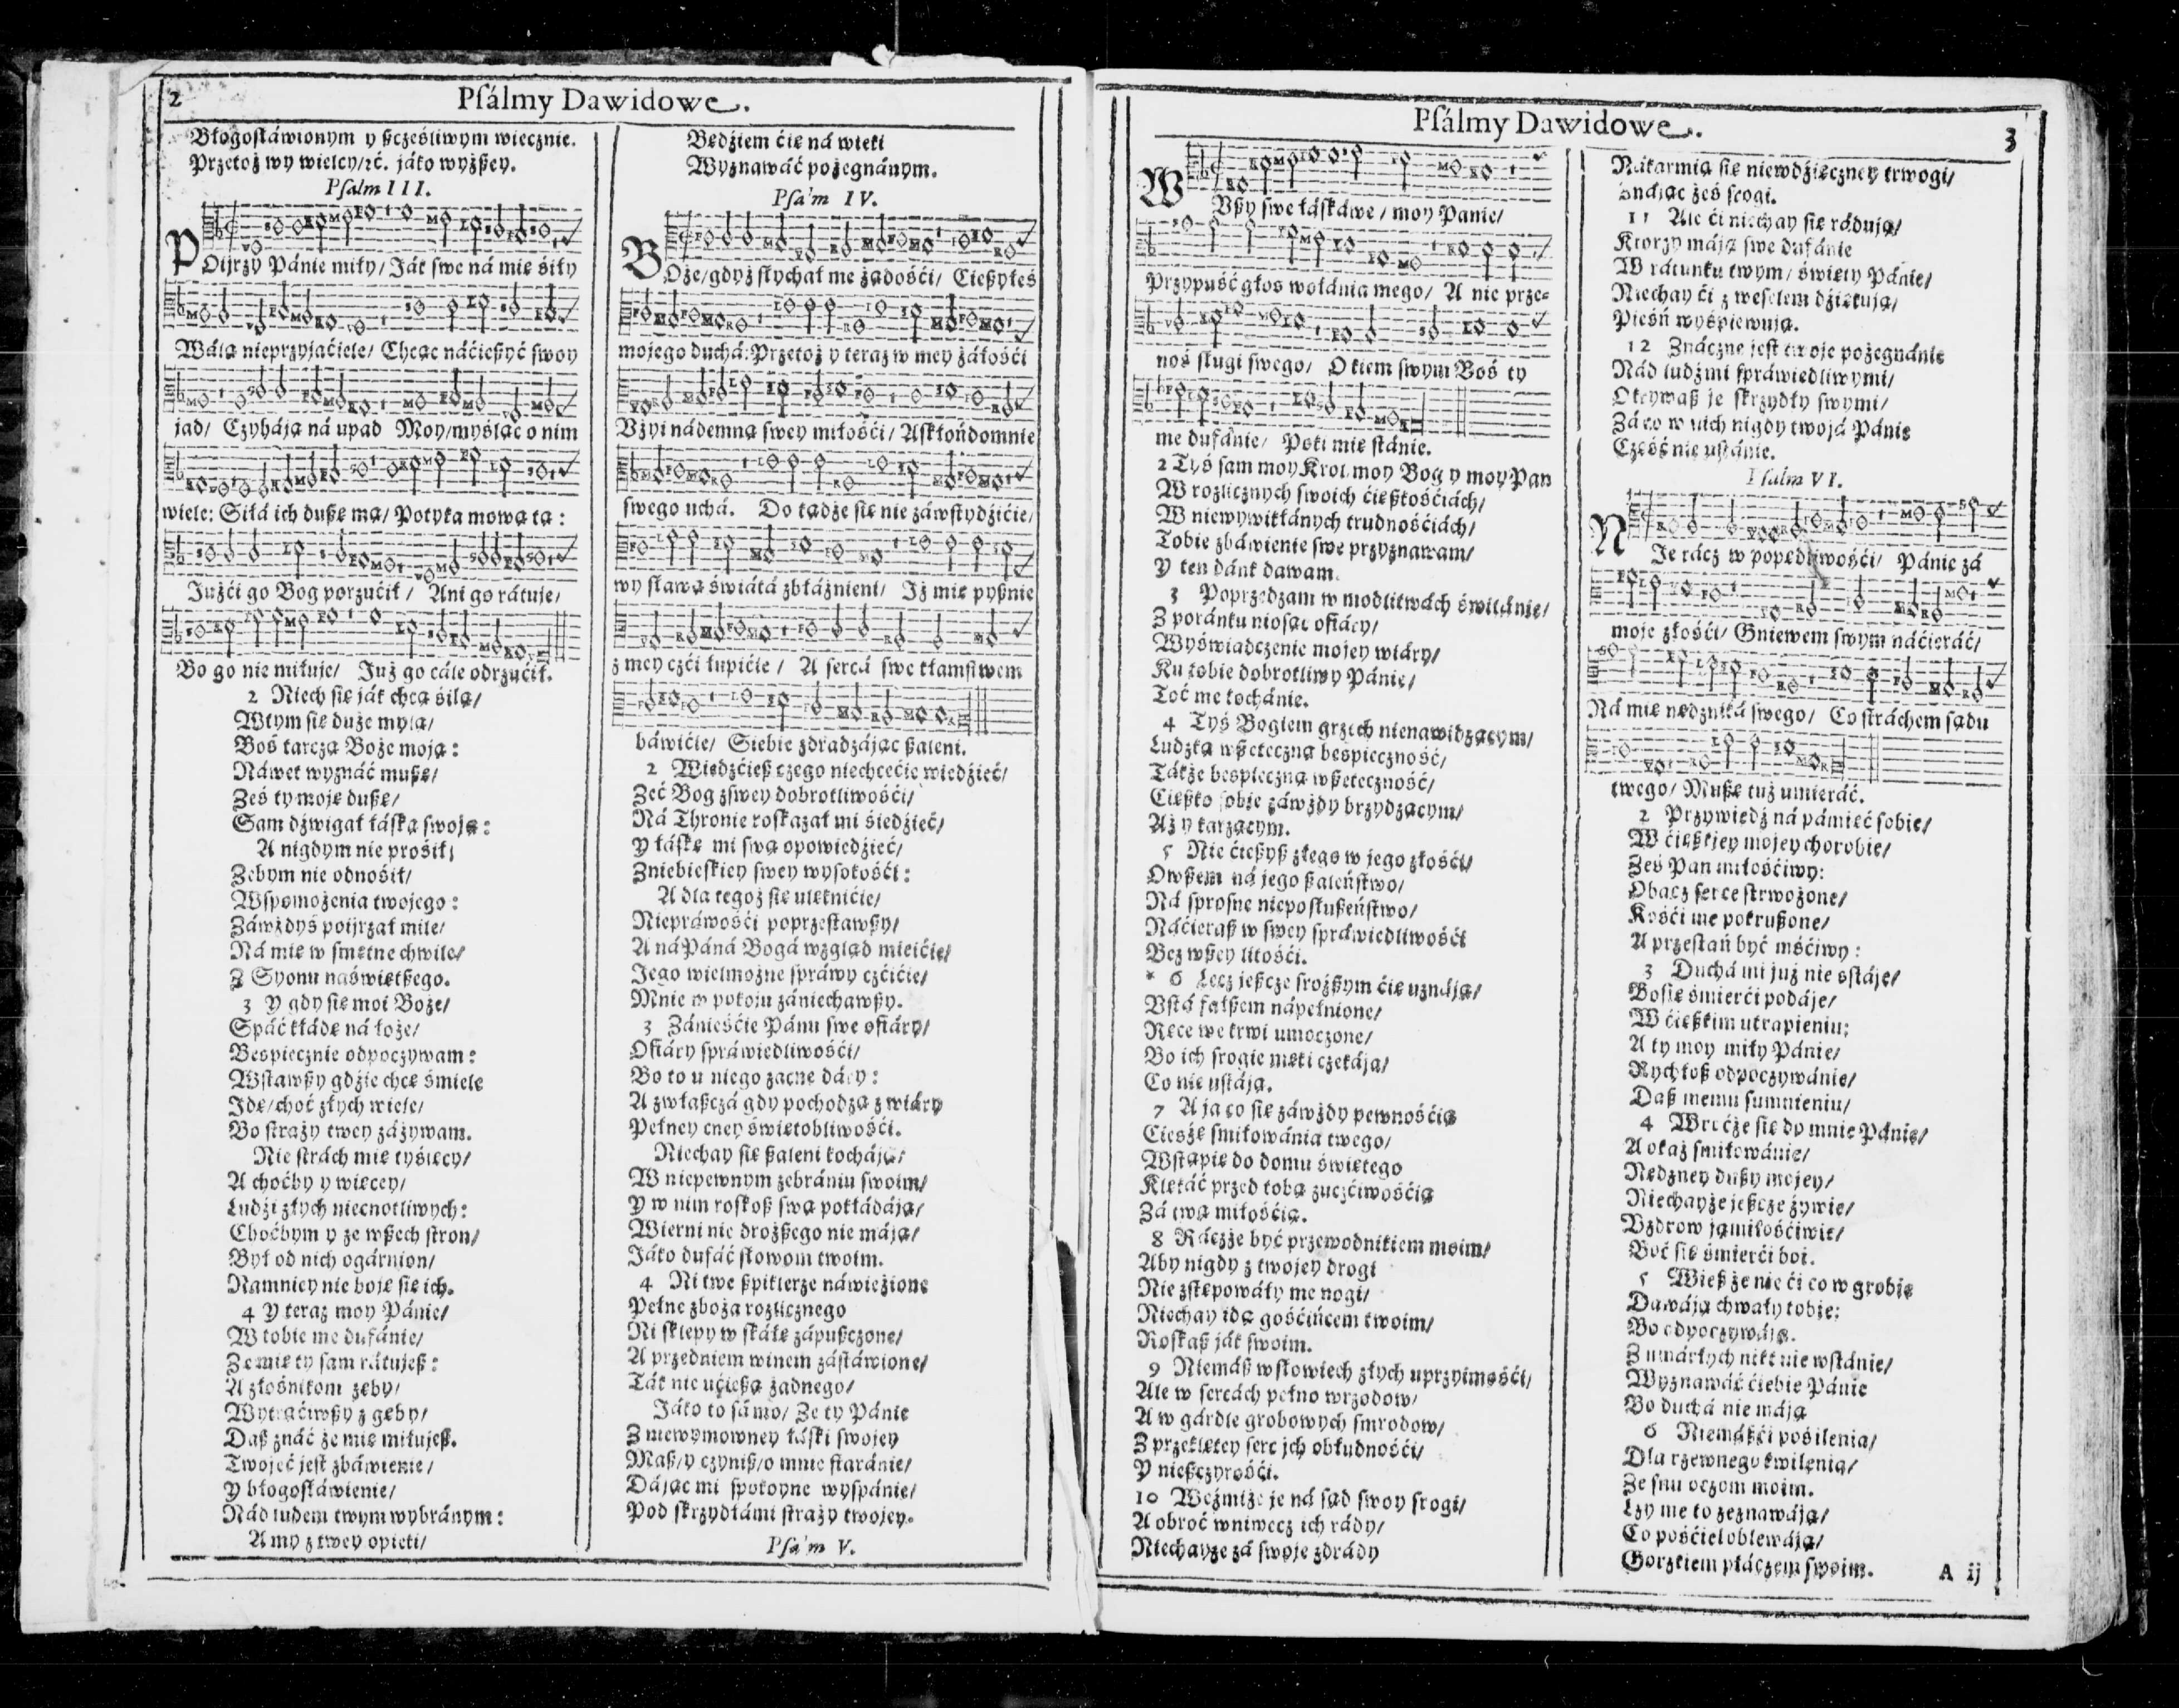 2
Psálmy Dawidowe.
Błogosłáwionym y szcześliwym wiecznie.
Przetoż wy wielcy/ ꝛc. jáko wyższey.
Psalm III.
POijrzy Pánie miły/ Ják swe ná mię siły
Wálą nieprzyjaćiele/ Chcąc náćieszyć swoy
jad/ Czyháją ná upad Moy/ myśląc o nim
wiele: Siłá ich duszę mą/ Potyka mową tą:
Jużći go Bog porzućił/ Ani go rátuje/
Bo go nie miłuje/ Już go cále odrzućił.
2 Niech się ják chcą śilą/
Wtym się duże mylą/
Boś tarczą Boże moją:
Náwet wyznáć muszę/
Żeś ty moję duszę/
Sam dźwigał łáską swoją:
A nigdym nie prośił/
Żebym nie odnośił/
Wspomożenia twojego:
Záwżdyś poijrzał mile/
Ná mię w smętne chwile/
Z Syonu naświętszego.
3 Y gdy się moi Boże/
Spáć kłádę ná łoże/
Bespiecznie odpoczywam:
Wstawszy gdźie chcę śmiele
Jdę/ choć złych wiele/
Bo straży twey záżywam.
Nie strách mię tyśięcy/
A choćby y więcey/
Ludźi złych niecnotliwych:
Choćbym y ze wszech stron/
Był od nich ogárnion/
Namniey nie boję się ich.
4 Y teraz moy Pánie/
W tobie me dufánie/
Że mię ty sam rátujesz:
A złośnikom zęby/
Wytrąćiwszy z gęby/
Dasz znáć że mię miłujesz.
Twojeć jest zbáwienie/
Y błogosłáwienie/
Nád ludem twym wybránym:
A my z twey opieki/
Będźiem ćię ná wieki
Wyznawáć pożegnánym.
Psalm IV.
BOże/ gdyż słychał me żądośći/ Ćieszyłeś
mojego duchá: Przetoż y teraz w mey żáłośći
Użyi nádemną swey miłośći/ A skłoń do mnie
swego uchá. Do kądże się nie záwstydźićie/
wy sławą świátá zbłáźnieni/ Iż mię pysznie
z mey czći łupićie/ A sercá swe kłamstwem
báwićie/ Siebie zdradzájąc szaleni.
2 Wiedzćiesz czego niechcećie wiedźieć/
Żeć Bog zswey dobrotliwośći/
Ná Thronie roskazał mi śiedźieć/
Y łáskę mi swą opowiedźieć/
Zniebieskiey swey wysokośći:
A dla tegoż się ulęknićie/
Niepráwośći poprzestawszy/
A ná Páná Bogá wzgląd mieićie/
Jego wielmożne spráwy czćićie/
Mnie w pokoju zániechawszy.
3 Zánieśćie Pánu swe ofiáry/
Ofiáry spráwiedliwośći/
Bo to u niego zacne dáry:
A zwłaszczá gdy pochodzą z wiáry
Pełney cney świętobliwośći.
Niechay się szaleni kocháją:
W niepewnym zebrániu swoim/
Y w nim roskosz swą pokłádáją/
Wierni nic droższego nie máją/
Jáko dufáć słowom twoim.
4 Ni twe szpiklerze náwieźione
Pełne zboża rozlicznego
Ni sklepy w skále zápuszczone/
A przedniem winem zástáwione/
Ták nie ućieszą żadnego/
Jáko to sámo/ Że ty Pánie
Z niewymowney łáski swojey
Masz/ y czynisz/ o mnie stáránie/
Dájąc mi spokoyne wyspánie/
Pod skrzydłámi straży twojey.
Psalm V.
Psálmy Dawidowe.
3
W Uszy swe łáskáwe/ moy Panie/
Przypuść głos wołánia mego/ A nie prze-
noś sługi swego/ Okiem swym Boś ty
me dufánie/ Poki mię stánie.
2 Tyś sam moy Krol moy Bog y moy Pan
W rozlicznych swoich ćięszkośćiách/
W niewywikłánych trudnośćiách/
Tobie zbáwienie swe przyznawam/
Y ten dánk dawam.
3 Poprzedzam w modlitwách świtánie/
Z poránku niosąc ofiáry/
Wyświadczenie mojey wiáry/
Ku tobie dobrotliwy Pánie/
Toć me kochánie.
4 Tyś Bogiem grzech nienawidzącym/
Ludzką wszeteczną bespieczność/
Tákże bespieczną wszeteczność/
Cięszko sobie záwżdy brzydzącym/
Aż y karzącym.
5 Nie ćieszysz złego w jego złośći/
Owszem ná jego szaleństwo/
Ná sprosne nieposłuszeństwo/
Náćierasz w swey spráwiedliwośći
Bez wszey litośći.
* 6 Lecz jeszcze sroższym ćię uznáją/
Ustá fałszem nápełnione/
Ręce we krwi umoczone/
Bo ich srogie męki czekáją/
Co nie ustáją.
7 A ja co się záwżdy pewnośćią
Cieszę smiłowánia twego/
Wstąpię do domu świętego
Klękáć przed tobą zuczćiwośćią
Zá twą miłośćią.
8 Ráczże być przewodnikiem moim/
Aby nigdy z twojey drogi
Nie zstępowáły me nogi/
Niechay idą gośćińcem twoim/
Roskaż ják swoim.
9 Niemász w słowiech złych uprzyimośći/
Ale w sercách pełno wrzodow/
A w gárdle grobowych smrodow/
Z przeklętey serc jch obłudnośći/
Y nieszczyrośći.
10 Weźmiże je ná sąd swoy srogi/
A obroć wniwecz ich rády/
Niechayze zá swoje zdrády
Nákarmią się niewdźięczney trwogi/
Znájąc żeś srogi.
11 Ale ći niechay się rádują/
Ktorzy máją swe dufánie
W rátunku twym/ święty Pánie/
Niechay ći z weselem dźiękują/
Pieśń wyśpiewują.
12 Znáczne jest twoje pożegnánie
Nád ludźmi spráwiedliwymi/
Okrywasz je skrzydły swymi/
Zá co w nich nigdy twojá Pánie
Cześć nie ustánie.
Psalm VI.
NIe rácz w popędliwośći/ Pánie zá
moje złośći/ Gniewem swym náćieráć/
Ná mię nędzniká swego/ Co stráchem sądu
twego/ Muszę tuż umieráć.
2 Przywiedź ná pámięć sobie/
W ćięszkiey mojey chorobie/
Żeś Pan miłośćiwy:
Obacz serce strwożone/
Kośći me pokruszone/
A przestań być mśćiwy:
3 Duchá mi już nie sstáje/
Bo się śmierći podáje/
W ćięszkim utrapieniu:
A ty moy miły Pánie/
Rychłosz odpoczywánie/
Dasz memu sumnieniu/
4 Wroćże się do mnie Pánie/
A okaż smiłowánie/
Nędzney duszy mojey/
Niechayże jeszcze żywie/
Uzdrow ją miłośćiwie/
Boć się śmierći boi.
5 Wiesz że nie ći co w grobie
Dawáją chwały tobie:
Bo odpoczywáją.
Z umárłych nikt nie wstánie/
Wyznawáć ćiebie Pánie
Bo duchá nie máją
6 Niemászći pośilenia/
Dla rzewnego kwilenia/
Ze snu oczom moim.
Łzy me to zeznawáją/
Co pośćiel oblewáją/
Gorzkiem płáczem swoim.
A ij